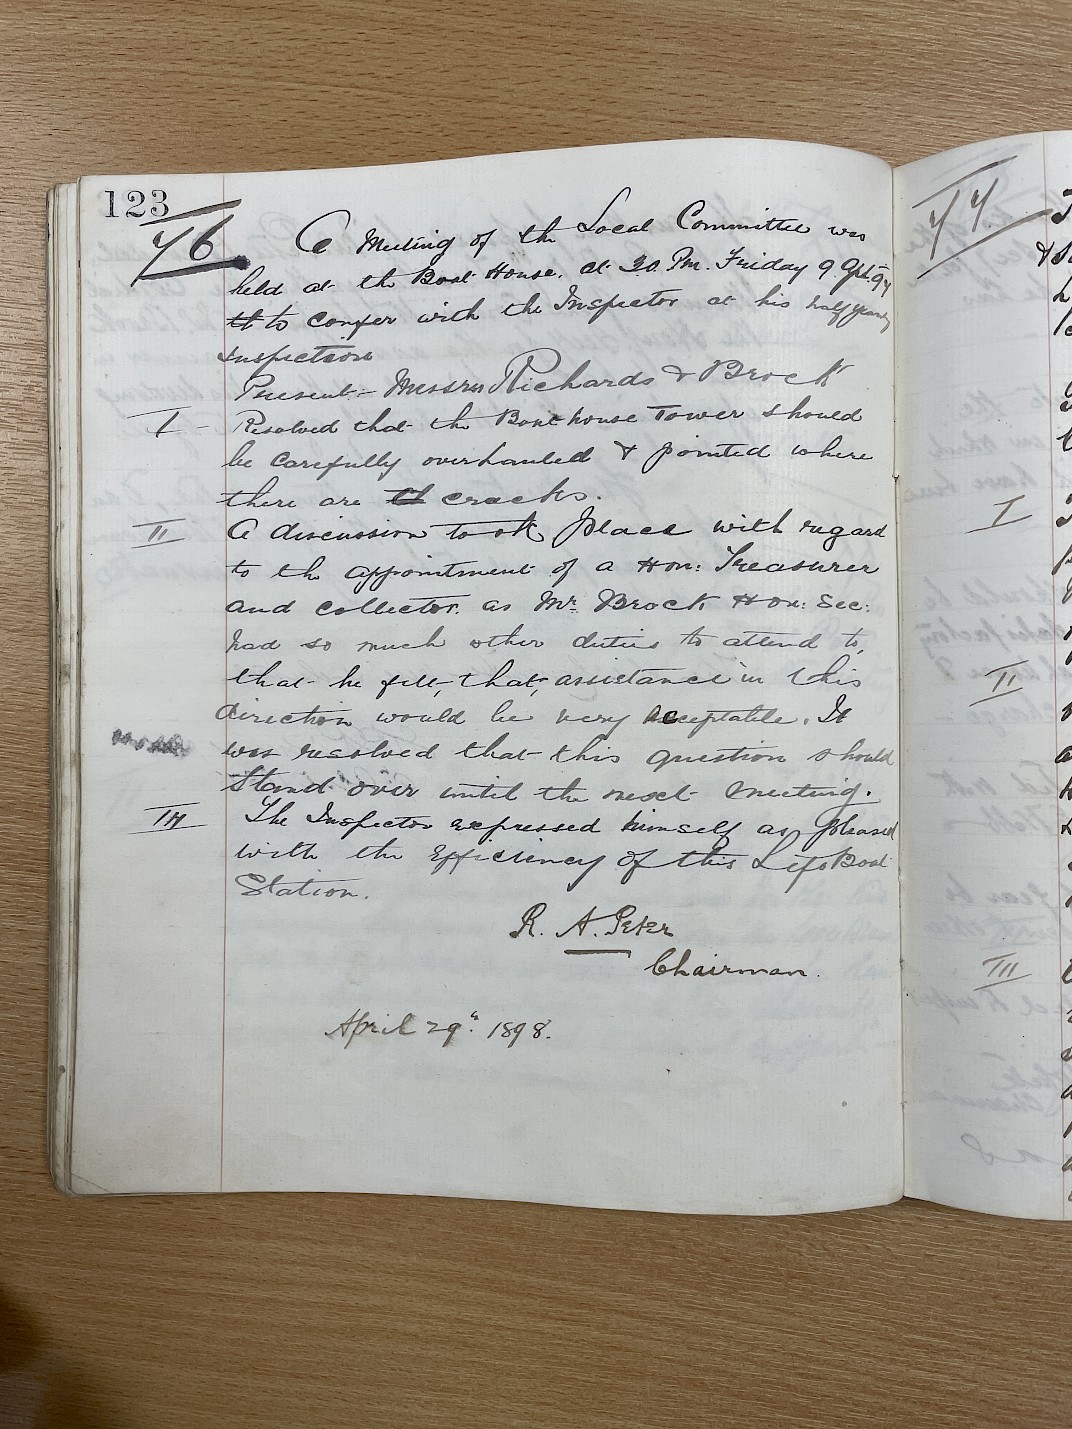 123
76
A Meeting of the Local Committee was
held at the Boat House. at 30. Pm. Friday 9
to confer with the Inspector at his half yearly
inspection
Present:- Messrs Richards & Brock
I - Resolved that the Boathouse Tower should
be carefully overhauled & pointed where
there are cracks.
II A discussion took place with regard
to the appointment of a Hon: Treasurer
and collector. as Mr. Brock Hon: Sec:
had so much other duties to attend to,
that he felt, that, assistance in this
direction would be very acceptable. It
was resolved that this question should
stand over until the next meeting.
III The Inspector expressed himself as pleased
with the Efficiency of this Life Boat
Station.
R. A. Peter
Chairman.
April 29th. 1898.
77.
I
II
III